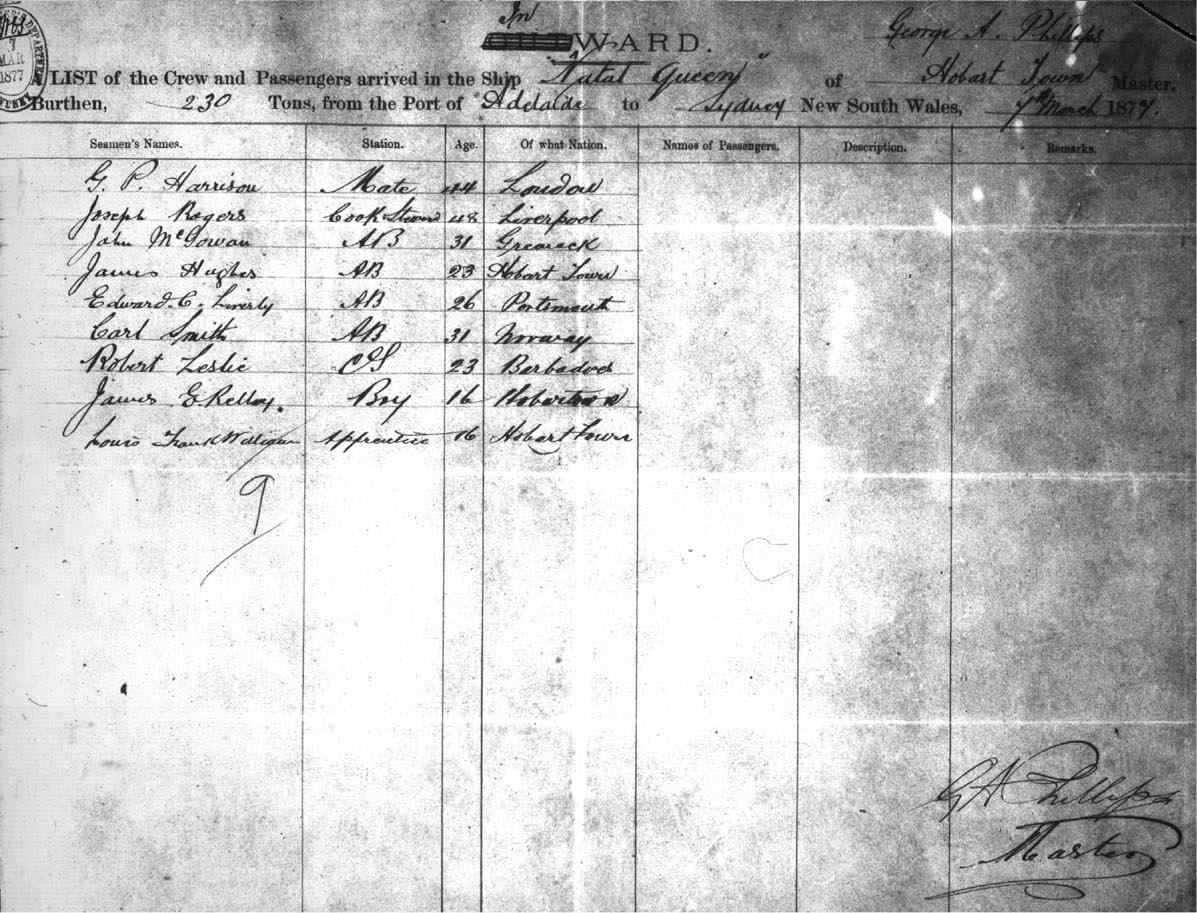 In
WARD.
George A. Phillips
LIST of the Crew and Passengers arrived in the Ship "Natal Queen" of Hobart Town Master.
Burthen, 230 Tons, from the Port of Adelaide to Sydney New South Wales, 7th March 1877.
MAR
1877
Seamen's Names. Station. Age. Of what Nation. Names of Passengers. Description. Remarks.
G. P. Harrison Mate 44 London
Joseph Rogers Cook Steward 48 Liverpool
John McGowan AB 31
James Hughes AB 23 Hobart Town
Edward C. AB 26 Portsmouth
Carl Smith AB 31 Norway
Robert Leslie OS 23 Barbados
James E Kelley. Boy 16 Hobartown
Louis Frank Apprentice 16 Hobart Town
9
G A Phillips
Master